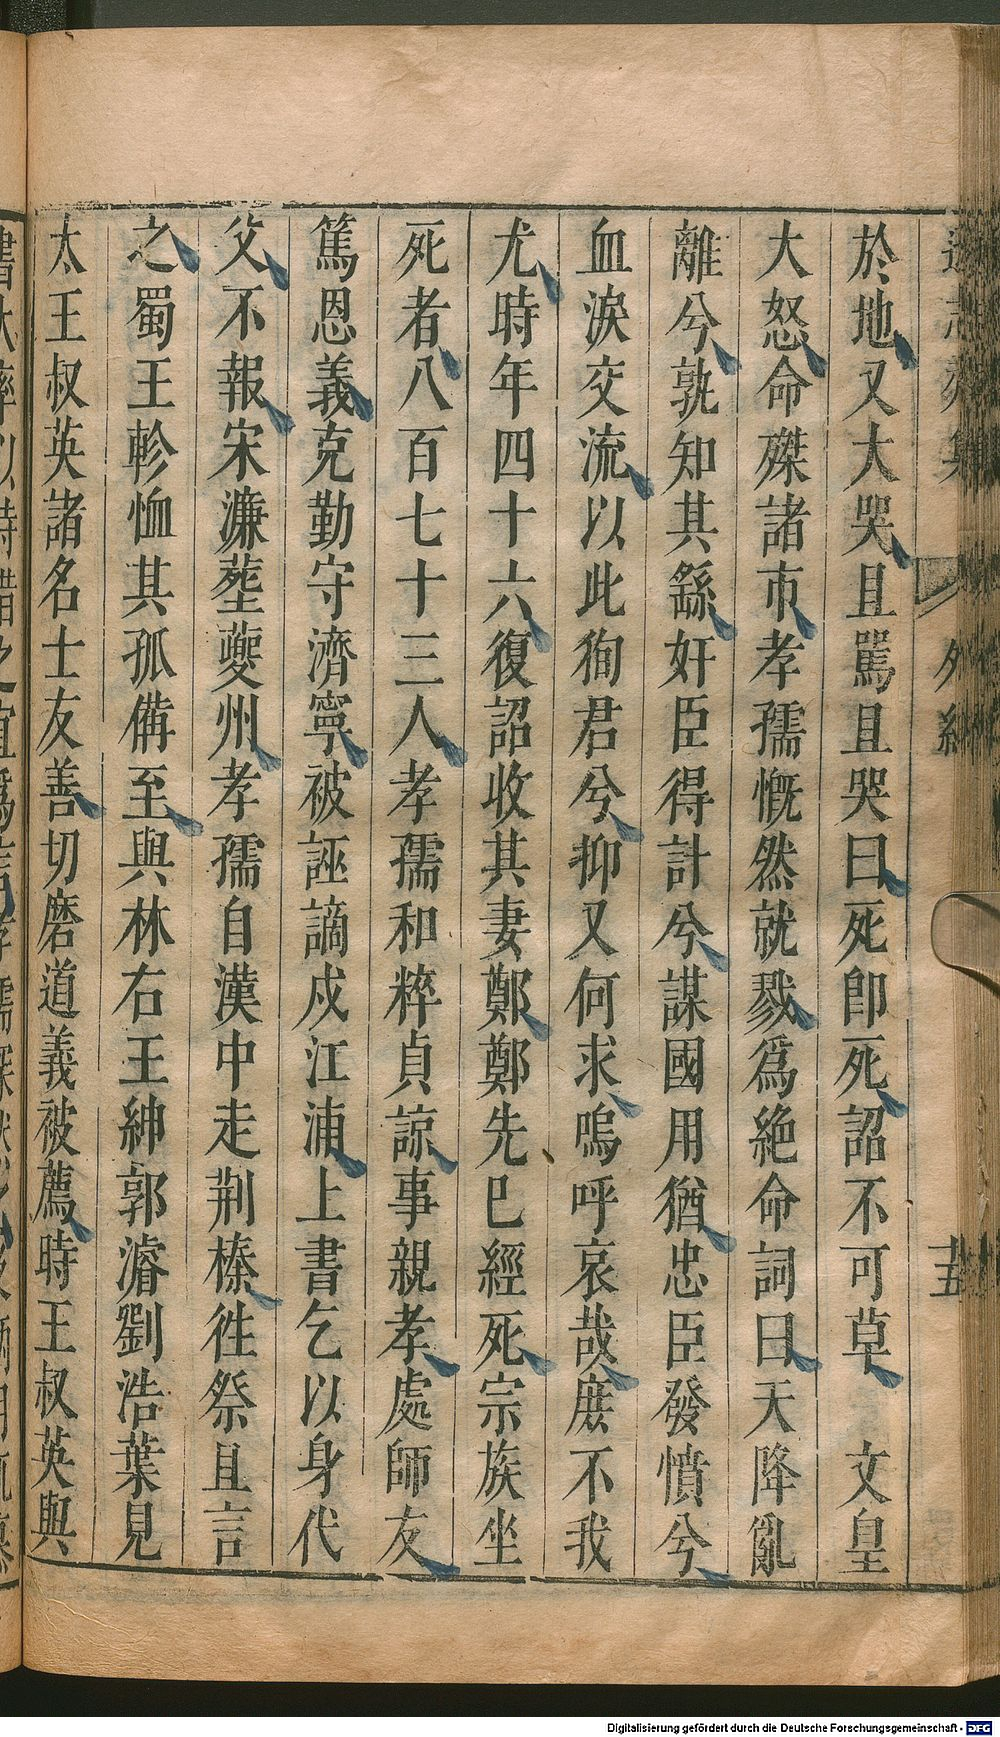 外紀
十五
於地又大哭且罵且哭曰死即死詔不可草　文皇
大怒命磔諸市孝孺慨然就戮爲絶命詞曰天降亂
離兮孰知其繇奸臣得計兮謀國用猶忠臣發憤兮
血淚交流以此狥君兮抑又何求嗚呼哀哉庶不我
尤時年四十六復詔收其妻鄭鄭先巳經死宗族坐
死者八百七十三人孝孺和粹貞諒事親孝處師友
篤恩義克勤守濟寧被誣謫戍江浦上書乞以身代
父不報宋濂塟夔州孝孺自漢中走荆榛徃祭且言
之蜀王軫恤其孤備至與林右王紳郭濬劉浩葉見
太王叔英諸名士友善切磨道義被薦時王叔英與
Digitalisierung gefördert durch die Deutsche Forschungsgemeinschaft - DFG